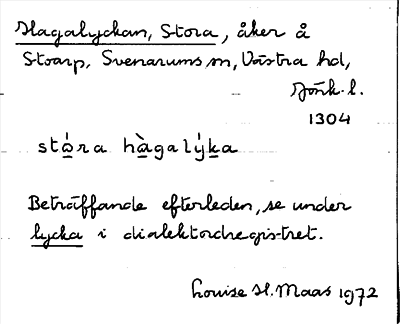 Hagalyckan, Stora, åker å
Stoarp, Svenarums sn, Västra hd,
Jönk. l.
1304
stó̲ra hà̲galýk̲a
Beträffande efterleden, se under
lycka i dialektordregistret.
Louise H. Maas 1972